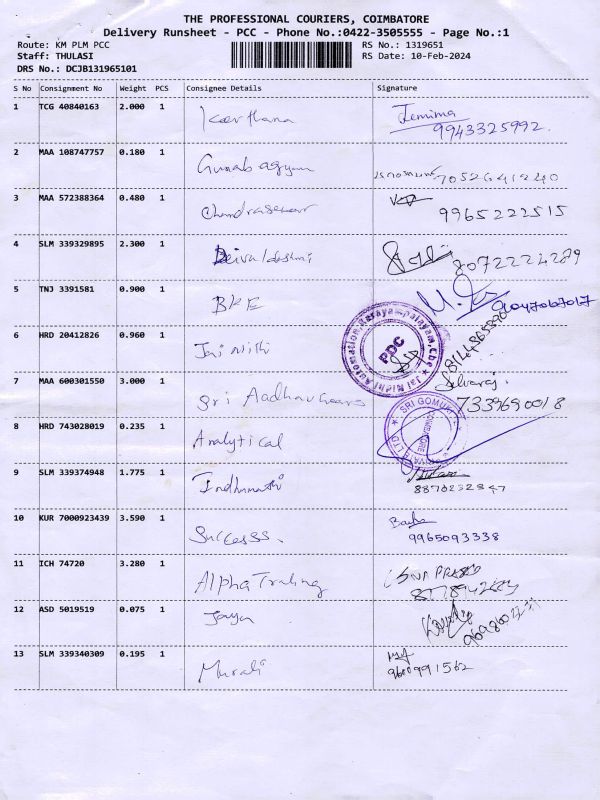 THE PROFESSIONAL COURIERS, COIMBATORE
Delivery Runsheet - PCC - Phone No.:0422-3505555 - Page No.:1
Route: KM PLM PCC
RS No.: 1319651
Staff: THULASI
RS Date: 10-Feb-2024
DRS No.: DCJB131965101
S No Consignment No Weight PCS Consignee Details Signature
1 TCG 40840163 2.000 1 Keerthana Jemima
9943325992.
2 MAA 108747757 0.180 1
3 MAA 572388364 0.480 1 Chandrasekar
9965222515
4 SLM 339329895 2.300 1 Deivalakshmi
8072224289
5 TNJ 3391581 0.900 1 BKE
6 HRD 20412826 0.960 1 Jai Nithi
PDC
7 MAA 600301550 3.000 1 Sri Aadhav Gears Selvaraj.
7339690018
8 HRD 743028019 0.235 1 Analytical
SRI GOMU
COIMBATORE
9 SLM 339374948 1.775 1 Indhumathi
10 KUR 7000923439 3.590 1 Success.
9965093338
11 ICH 74720 3.280 1 Alpha Trading
12 ASD 5019519 0.075 1 Jaya
13 SLM 339340309 0.195 1 Murali